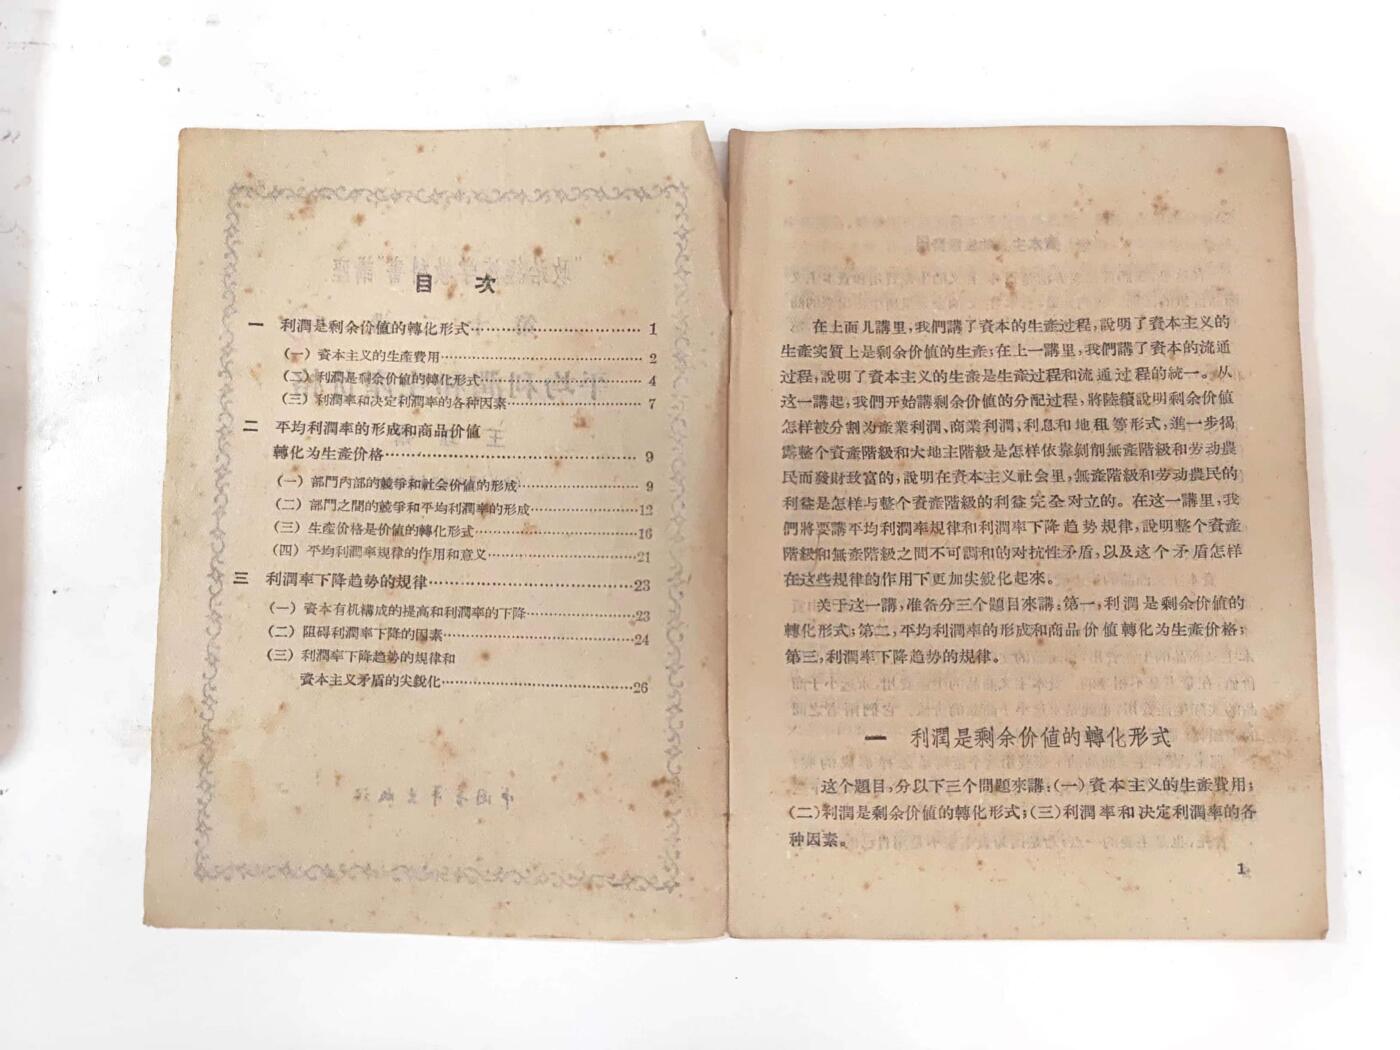 目 次
一 利潤是剩余价值的轉化形式……………………………1
(一) 資本主义的生產費用……………………………………2
(二) 利潤是剩余价值的轉化形式……………………………4
(三) 利潤率和决定利潤率的各种因素………………………7
二 平均利潤率的形成和商品价值
轉化为生產价格……………………………………………9
(一) 部門內部的競爭和社会价值的形成……………………9
(二) 部門之間的競爭和平均利潤率的形成…………………12
(三) 生產价格是价值的轉化形式……………………………16
(四) 平均利潤率規律的作用和意义…………………………21
三 利潤率下降趋势的規律…………………………………23
(一) 資本有机構成的提高和利潤率的下降…………………23
(二) 阻碍利潤率下降的因素…………………………………24
(三) 利潤率下降趋势的規律和
資本主义矛盾的尖銳化……………………………………26
在上面几講里,我們講了資本的生產过程,說明了資本主义的
生產实質上是剩余价值的生產;在上一講里,我們講了資本的流通
过程,說明了資本主义的生產是生產过程和流通过程的統一。从
这一講起,我們开始講剩余价值的分配过程,將陸續說明剩余价值
怎样被分割为產業利潤、商業利潤、利息和地租等形式,進一步揭
露整个資產階級和大地主階級是怎样依靠剝削無產階級和劳动農
民而發財致富的,說明在資本主义社会里,無產階級和劳动農民的
利益是怎样与整个資產階級的利益完全对立的。在这一講里,我
們將要講平均利潤率規律和利潤率下降趋势規律,說明整个資產
階級和無產階級之間不可調和的对抗性矛盾,以及这个矛盾怎样
在这些規律的作用下更加尖銳化起來。
关于这一講,准备分三个題目來講:第一,利潤是剩余价值的
轉化形式;第二,平均利潤率的形成和商品价值轉化为生產价格;
第三,利潤率下降趋势的規律。
一 利潤是剩余价值的轉化形式
这个題目,分以下三个問題來講:(一)資本主义的生產費用;
(二)利潤是剩余价值的轉化形式;(三)利潤率和决定利潤率的各
种因素。
1